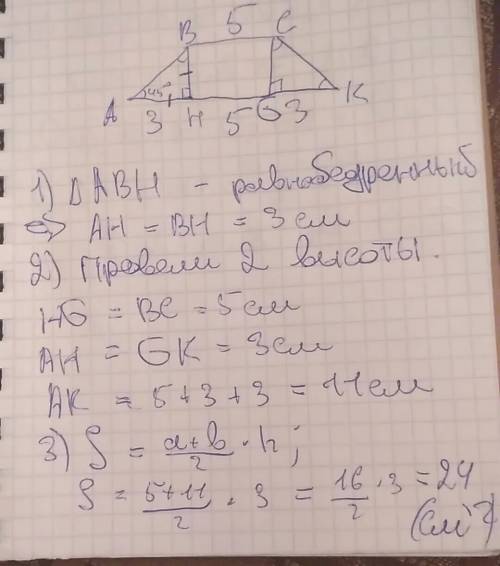 B 5 C
45°
A 3 H 5 G 3 K
1) Δ ABH - равнобедренный
⇒ AH = BH = 3 см
2) Провели 2 высоты.
HG = BC = 5 см
AH = GK = 3 см
AK = 5 + 3 + 3 = 11 см
3) S = a+b/2 · h;
S = 5+11/2 · 3 = 16/2 · 3 = 24
(см²)